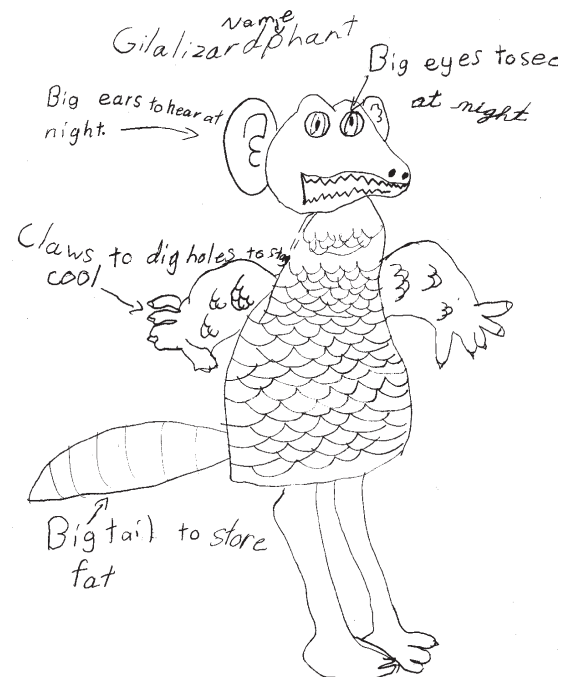 Name
Gilalizardphant
Big eyes to see
at night
Big ears to hear at
night.
Claws to dig holes to stay
cool
Big tail to store
fat